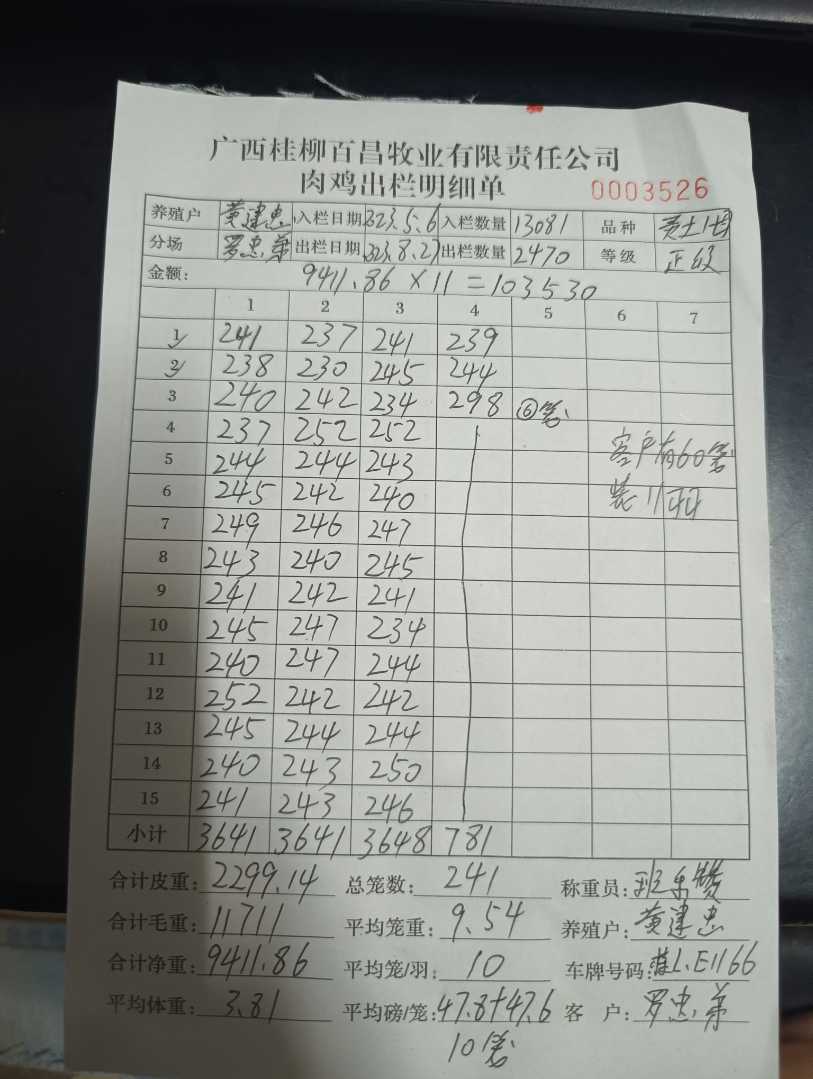 广西桂柳百昌牧业有限责任公司
肉鸡出栏明细单 0003526
养殖户 黄建忠 入栏日期 323.5.6 入栏数量 13081 品种
分场 罗忠弟 出栏日期 323.8.27 出栏数量 2470 等级 正级
金额: 9411.86 × 11 = 103530
1 2 3 4 5 6 7
1 241 237 241 239
2 238 230 245 244
3 240 242 234 298 ⑥笼
4 237 252 252
5 244 244 243 客户有60笼
6 245 242 240 装11羽
7 249 246 247
8 243 240 245
9 241 242 241
10 245 247 234
11 240 247 244
12 252 242 242
13 245 244 244
14 240 243 250
15 241 243 246
小计 3641 3641 3648 781
合计皮重: 2299.14 总笼数: 241 称重员: 班
合计毛重: 11711 平均笼重: 9.54 养殖户: 黄建忠
合计净重: 9411.86 平均笼/羽: 10 车牌号码: L.E1166
平均体重: 3.81 平均磅/笼: 47.8+47.6 客 户: 罗忠弟
10笼